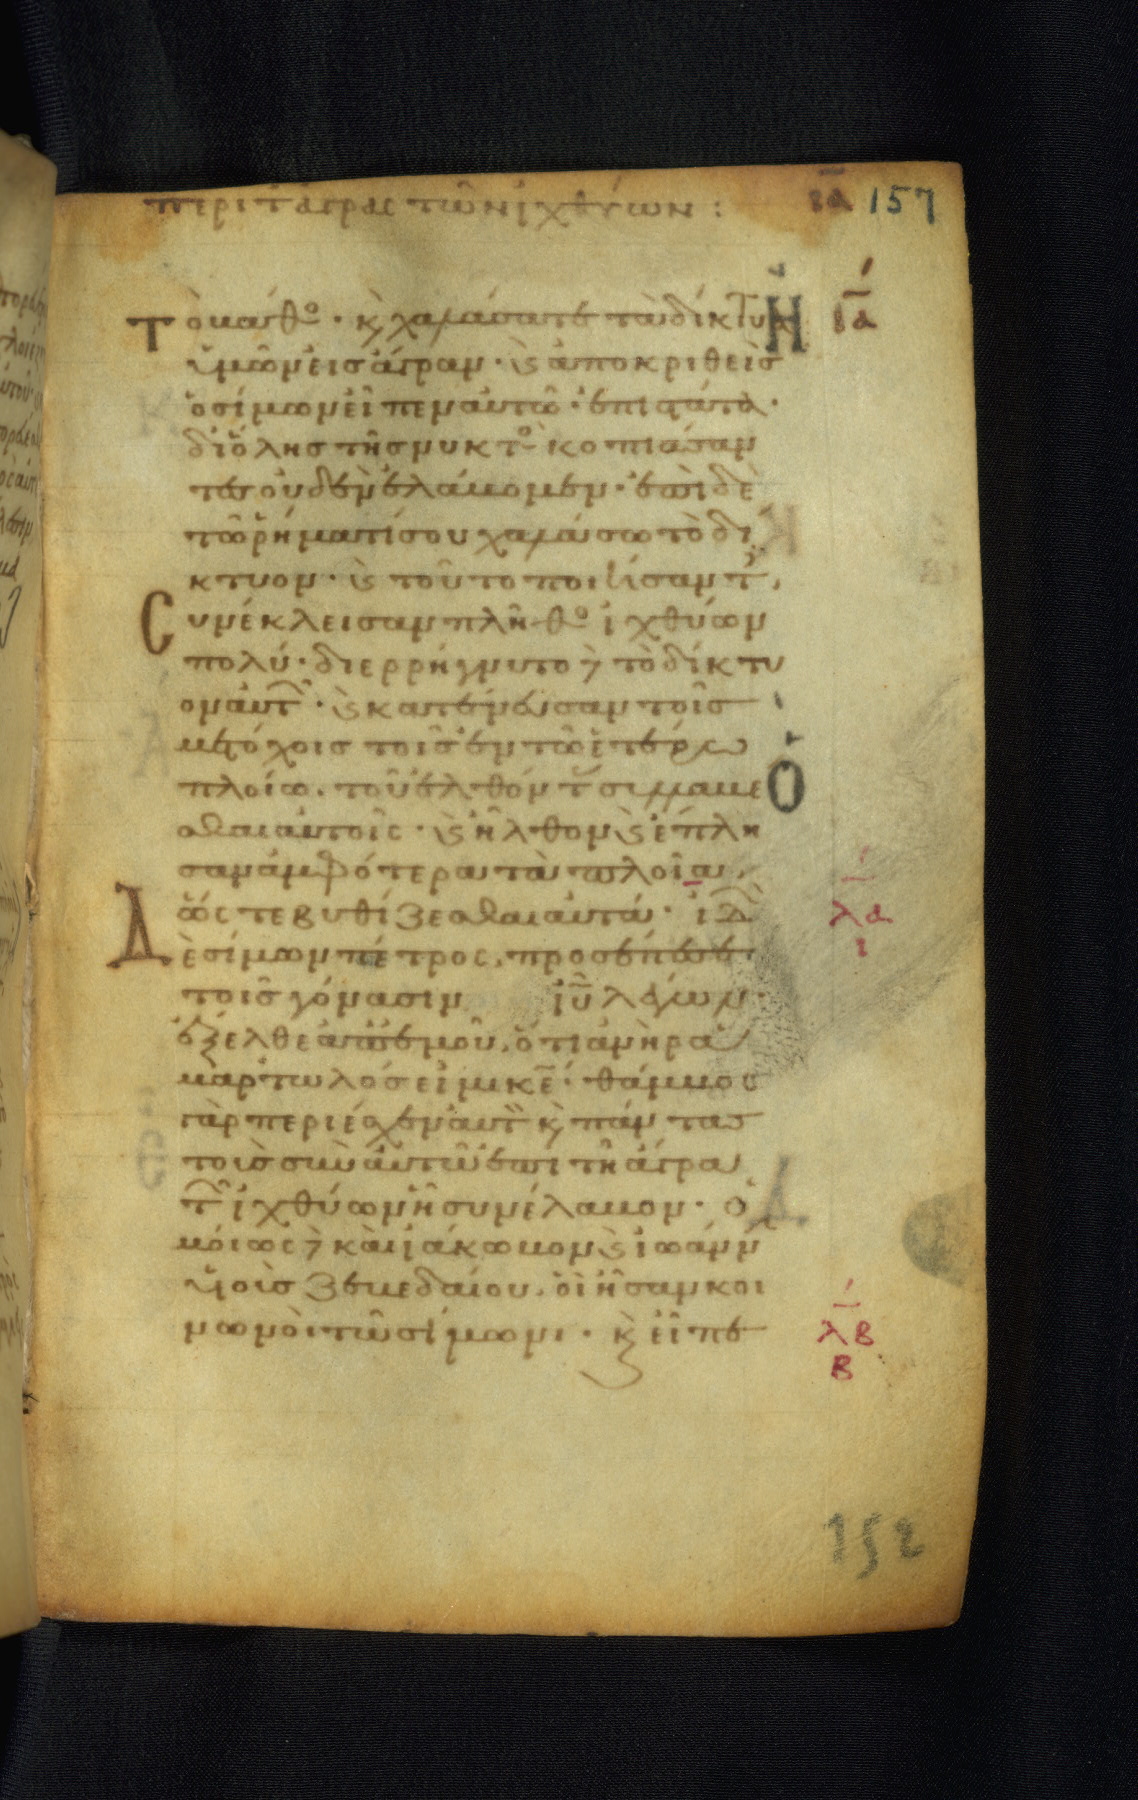 περὶ τ ἄγρας τῶν ἰχθύων : ια 157
Τὸ βάθο · κ χαλάσατε τὰ δίκτυα ια
ὑμῶν εἰς ἄγραν · κ ἀποκριθεὶς
ὁ σίμων εἶπεν αὐτῶ · ἐπιστάτα ·
δι' ὅλης τῆς νυκτο κοπιάσαν
τες οὐδὲν ἐλάβομεν · ἐπὶ δὲ
τῶ ῥήματί σου χαλάσω τὸ δί
κτυον · κ τοῦτο ποιήσαντ,
Συνέκλεισαν πλῆθο ἰχθύων
πολύ · διερρήγνυτο δ τὸ δίκτυ
ον αὐτ · κ κατένευσαν τοῖς
μετόχοις τοῖς ἐν τῶ ἑτέρω
πλοίω. τοῦ ἐλθόντ συλλαβέ
σθαι αὐτοῖς · κ ἦλθον κ ἔπλη
σαν ἀμφότερα τὰ πλοῖα,
ὥστε βυθίζεσθαι αὐτά · ἰδ λα
Δὲ σίμων πέτρος, προσέπεσε ι
τοῖς γόνασιν ιυ λέγων ·
ἔξελθε ἀπ' ἐμοῦ, ὅτι ἀνὴρ ἁ
μαρτωλός εἰμι κε · θάμβος
γὰρ περιέσχεν αὐτ κ πάντας
τοὺς σὺν αὐτῶ ἐπὶ τῆ ἄγρα
τ ἰχθύων ἧ συνέλαβον · ὁ
μοίως δ καὶ ἰάκωβον κ ἰωάνν
υἱοὺς ζεβεδαίου, οἳ ἦσαν κοι
νωνοὶ τῶ σίμωνι · κ εἶπε λβ
β
152